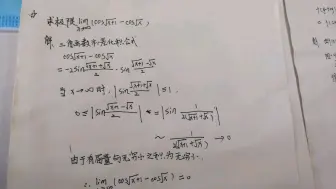 求极限 lim x→∞ (cos√x+1 − cos√x)
解. 三角函数和差化积公式
cos√x+1 − cos√x
= −2sin (√x+1+√x)/2 · sin (√x+1−√x)/2
当 x→∞ 时, |sin (√x+1+√x)/2| ≤ 1.
0 ≤ |sin (√x+1−√x)/2| = |sin 1/2(√x+1+√x)|
~ 1/2(√x+1+√x) → 0
由于有界量与无穷小之积为无穷小.
∴ lim (cos√x+1 − cos√x) = 0